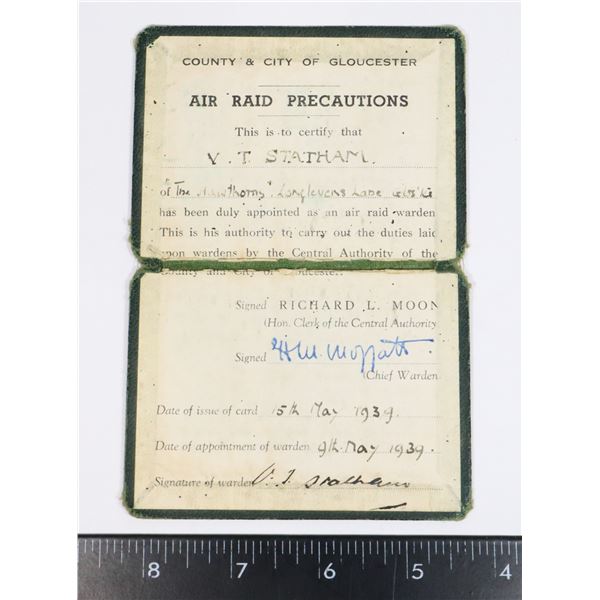 COUNTY & CITY OF GLOUCESTER
AIR RAID PRECAUTIONS
This is to certify that
V. T. STATHAM.
of "The Hawthorns" Longlevens Lane
has been duly appointed as an air raid warden
This is his authority to carry out the duties laid
upon wardens by the Central Authority of the
County and City of Gloucester.
Signed RICHARD L. MOON
(Hon. Clerk of the Central Authority
Signed H.M. Moffatt
(Chief Warden
Date of issue of card 15th May 1939.
Date of appointment of warden 9th May 1939.
Signature of warden V. T. Statham
8 7 6 5 4